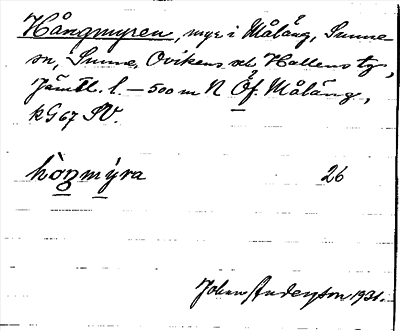 Hångmyren, myr i Målång, Sunne
sn, Sunne, Ovikens och Hallens tg,
Jämtl. l. – 500 m N Öf. Målång,
kG67 SV.
hòŋmýra 26
Johan Anderson 1931.